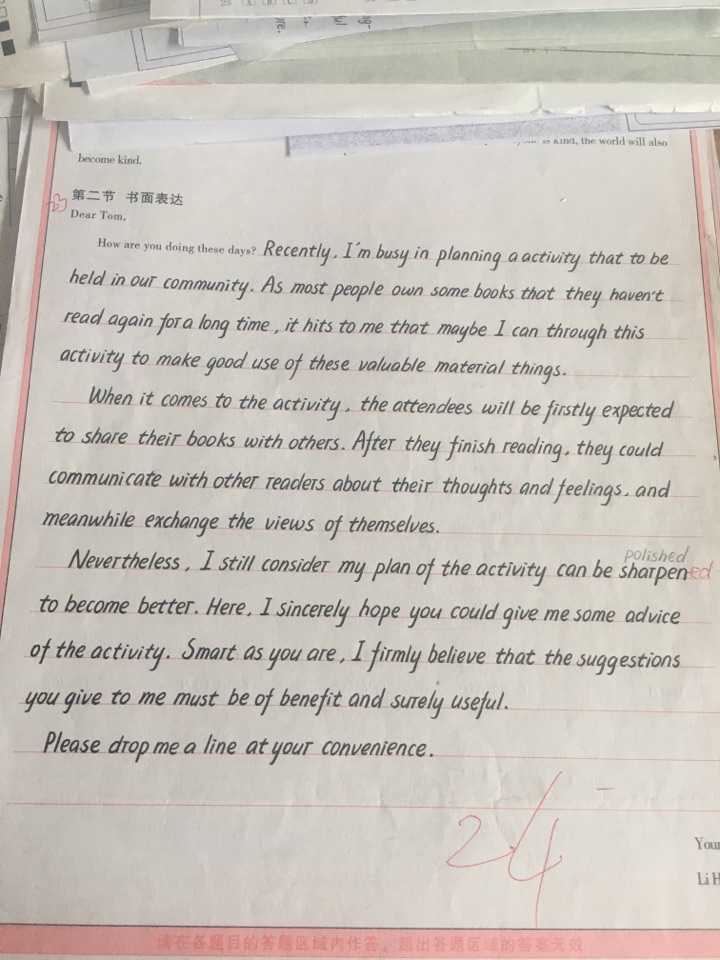 kind, the world will also
become kind.
第二节 书面表达
Dear Tom,
How are you doing these days? Recently, I'm busy in planning a activity that to be
held in our community. As most people own some books that they haven't
read again for a long time, it hits to me that maybe I can through this
activity to make good use of these valuable material things.
When it comes to the activity, the attendees will be firstly expected
to share their books with others. After they finish reading, they could
communicate with other readers about their thoughts and feelings, and
meanwhile exchange the views of themselves.
polished
Nevertheless, I still consider my plan of the activity can be sharpened
to become better. Here, I sincerely hope you could give me some advice
of the activity. Smart as you are, I firmly believe that the suggestions
you give to me must be of benefit and surely useful.
Please drop me a line at your convenience.
24
You
Li H
请在各题目的答题区域内作答，超出答题区域的答案无效